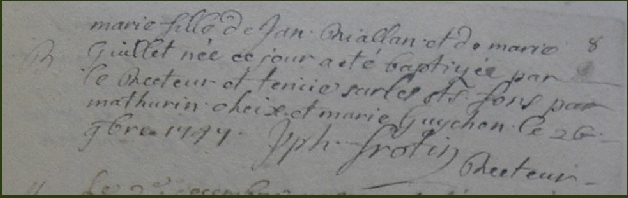 marie fille de Jan Riallan et de marie 8
B Guillet née ce jour a eté baptisée par
le Recteur et tenüe sur les sts fons par
mathurin choix et marie Guychon le 26
9bre 1777. Jph Grotin
Recteur
Le